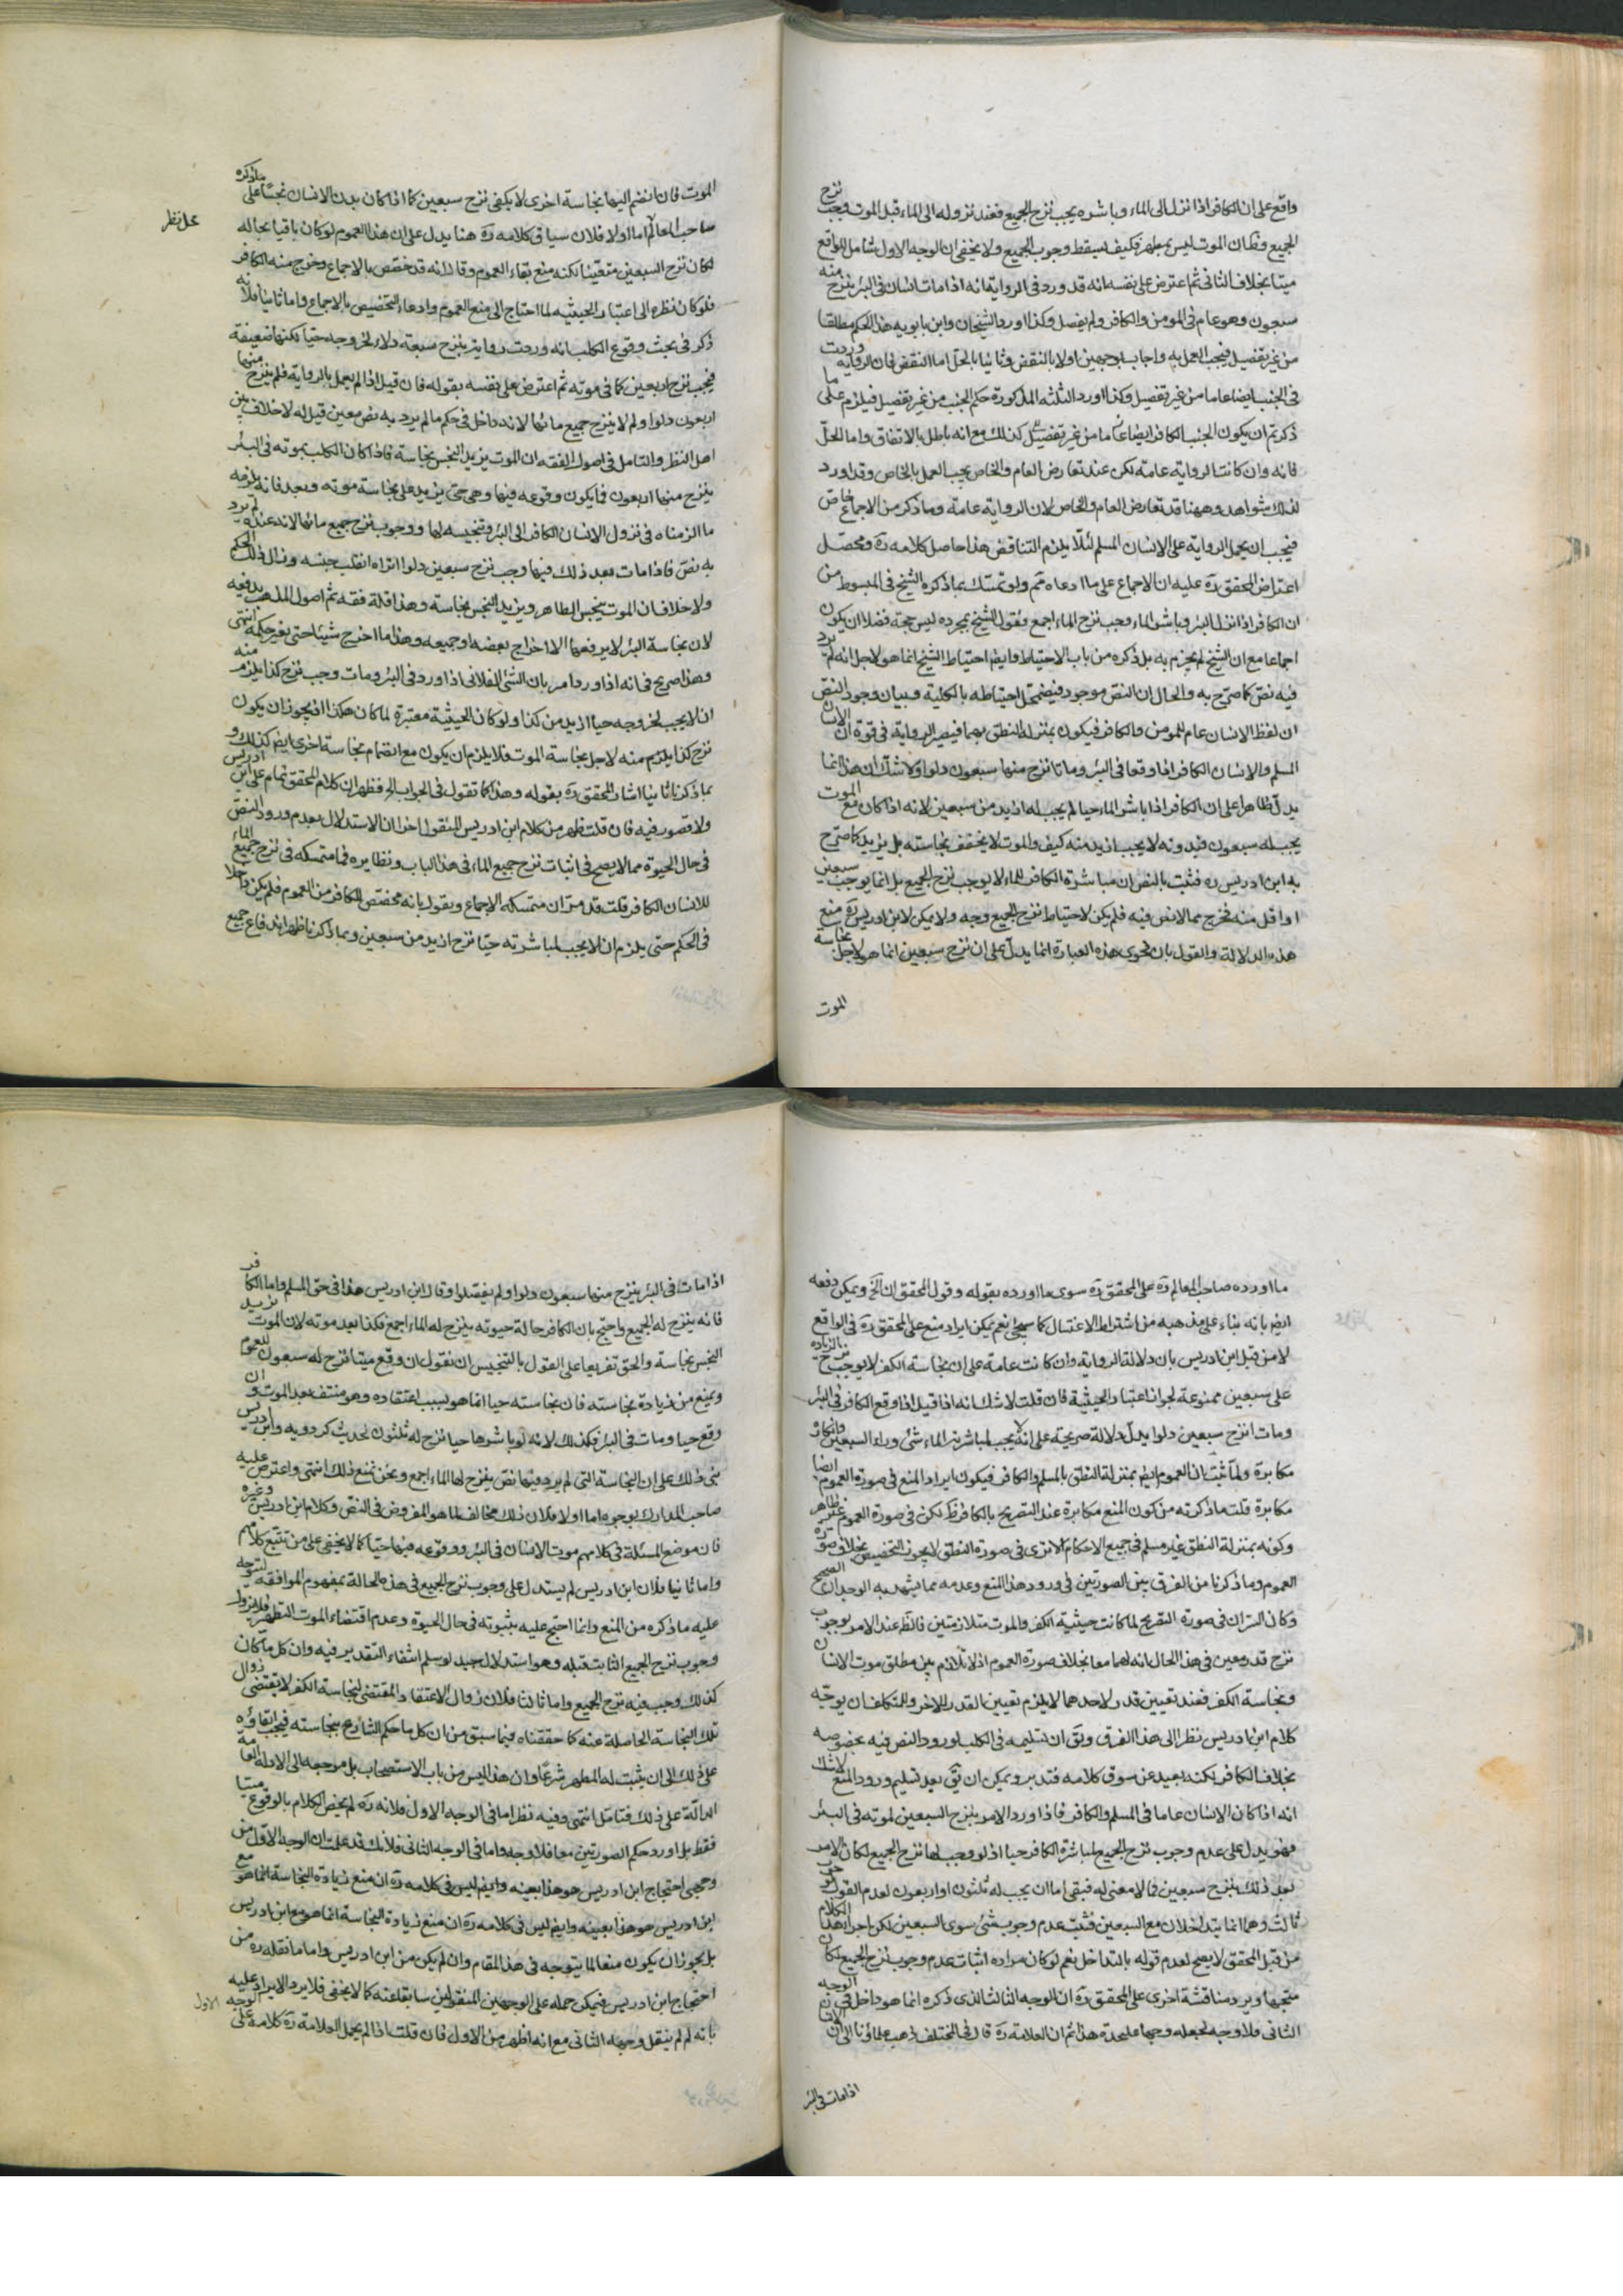 واقع على ان الكافر اذا نزل الى الماء وباشره يجب نزح الجميع فعند نزوله الى الماء قبل الموت وجب نزح
الجميع وظ ان الموت ليس بمطهر فكيف يسقط وجوب الجميع ولا يخفى ان الوجه الاول شامل للواقع
ميتا بخلاف الثانى ثم اعترض على نفسه انه قد ورد فى الرواية انه اذا مات انسان فى البئر ينزح منه
سبعون وهو عام فى المومن والكافر ولم يفصل وكذا اورد الشيخان وابن بابويه هذا الحكم مطلقا
من غير تفصيل فيجب العمل به واجاب بوجهين اولا بالنقض وثانيا بالحل اما النقض فان الرواية وردت
فى الجنب ايضا عاما من غير تفصيل وكذا اورد الثلثه المذكورة حكم الجنب من غير تفصيل فيلزم على ما
ذكرتم ان يكون الجنب الكافر ايضا عاما من غير تفصيل كذلك مع انه باطل بالاتفاق واما الحل
فانه وان كانت الرواية عامة لكن عند تعارض العام والخاص يجب العمل بالخاص وقد اورد
لذلك شواهد وههنا قد تعارض العام والخاص لان الرواية عامة وما ذكر من الاجماع خاص
فيجب ان يحمل الرواية على الانسان المسلم لئلا يلزم التناقض هذا حاصل كلامه ره ومحصل
اعتراض المحقق ره عليه ان الاجماع على ما ادعاه مم ولو تمسك بما ذكره الشيخ فى المبسوط من
ان الكافر اذا نزل البئر وباشر الماء وجب نزح الماء اجمع فقول الشيخ بمجرده ليس حجة فضلا ان يكون
اجماعا مع ان الشيخ لم يجزم به بل ذكره من باب الاحتياط وايضا احتياط الشيخ انما هو لاجل انه لم يرد
فيه نص كما صرح به والحال ان النص موجود فيضمحل احتياطه بالكلية وبيان وجود النص
ان لفظ الانسان عام للمومن والكافر فيكون بمنزلة النطق بهما فيصير الرواية فى قوة ان الانسان
المسلم والانسان الكافر اذا وقعا فى البئر وماتا نزح منها سبعون دلوا ولا شك ان هذا انما
يدل ظاهرا على ان الكافر اذا باشر الماء حيا لم يجب له ازيد من سبعين لانه اذا كان مع الموت
يجب له سبعون فبدونه لا يجب ازيد منه كيف والموت لا يخفف نجاسته بل يزيد كما صرح
به ابن ادريس ره فثبت بالنص ان مباشرة الكافر للماء لا يوجب نزح الجميع بل انما يوجب سبعين
او اقل منه فخرج مما لا نص فيه فلم يكن لاحتياط نزح الجميع وجه ولا يمكن لابن ادريس ره منع
هذه الدلالة والقول بان فحوى هذه العبارة انما يدل على ان نزح سبعين انما هو لاجل نجاسة
الموت
الموت فان انضم اليها نجاسة اخرى لا يكفى نزح سبعين كما اذا كان بدن الانسان نجسا على ما ذكره
محل نظر
صاحب المعالم اما اولا فلان سياق كلامه ره هنا يدل على ان هذا العموم لو كان باقيا بحاله
لكان نزح السبعين متعينا لكنه منع بقاء العموم وقال انه قد خصص بالاجماع وخرج منه الكافر
فلو كان نظره الى اعتبار الحيثيه لما احتاج الى منع العموم وادعاء التخصيص بالاجماع واما ثانيا فلانه
ذكر فى بحث وقوع الكلب انه وردت رواية بنزح سبعة دلاء لخروجه حيا لكنها ضعيفة
فيجب نزح اربعين كما فى موته ثم اعترض على نفسه بقوله فان قيل اذا لم يعمل بالرواية فلم ينزح منها
اربعون دلوا ولم لا ينزح جميع مائها لانه داخل فى حكم ما لم يرد به نص معين قيل له لا خلاف بين
اهل النظر والتامل فى اصول الفقه ان الموت يزيد النجس نجاسة فاذا كان الكلب بموته فى البئر
ينزح منها اربعون فما يكون وقوعه فيها وهى حتى يزيد على نجاسة موته وبعد فانه يلزمه
ما الزمناه فى نزول الانسان الكافر الى البئر وتنجيسه لها ووجوب نزح جميع مائها لانه عنده لم يرد
به نص فاذا مات بعد ذلك فيها وجب نزح سبعين دلوا اتراه انقلب جنسه وزال ذلك الحكم
ولا خلاف ان الموت ينجس الطاهر ويزيد النجس نجاسة وهذا قلة فقه ثم اصول المذهب يدفعه
لان نجاسة البئر لا يرفعها الا اخراج بعضه او جميعه وهذا ما اخرج شيئا حتى يغير حكمه انتهى
وهذا صريح فى انه اذا ورد امر بان الشئ الفلانى اذا ورد فى البئر ومات وجب نزح كذا يلزم منه
ان لا يجب لخروجه حيا ازيد من كذا ولو كان الحيثية معتبرة لما كان هكذا اذ يجوز ان يكون
نزح كذا يلزم منه لاجل نجاسة الموت فلا يلزم ان يكون مع انضمام نجاسة اخرى ايضا كذلك و
بما ذكرنا ثانيا اشار المحقق ره بقوله وهذا كما تقول فى الجواب الخ فظهر ان كلام المحقق تمام على ابن ادريس
ولا قصور فيه فان قلت ظهر من كلام ابن ادريس المنقول اخرا ان الاستدلال بعدم ورود النص
فى حال الحيوة مما لا يصح فى اثبات نزح جميع الماء فى هذا الباب ونظايره فما متمسكه فى نزح جميع الماء
للانسان الكافر قلت قد مر ان متمسكه الاجماع ويقول بانه مخصص للكافر من العموم فلم يكن داخلا
فى الحكم حتى يلزم ان لا يجب لمباشرته حيا نزح ازيد من سبعين وبما ذكرنا ظهر اندفاع جميع
ما اورده صاحب المعالم ره على المحقق ره سوى ما اورده بقوله وقول المحقق ان الخ ويمكن دفعه
ايضا بانه بناء على مذهبه من اشتراط الاغتسال كما سيجئ نعم يمكن ايراد منع على المحقق ره فى الواقع
لا من قبل ابن ادريس بان دلالة الرواية وان كانت عامة على ان نجاسة الكفر لا يوجب نزح الزيادة
على سبعين ممنوعة لجواز اعتبار الحيثية فان قلت لا شك انه اذا قيل اذا وقع الكافر فى البئر
ومات انزح سبعين دلوا يدل دلالة صريحة على انه لا يجب لمباشرته الماء شئ وراء السبعين وانكاره
مكابرة ولما ثبت ان العموم ايضا بمنزلة النطق بالمسلم والكافر فيكون ايراد المنع فى صورة العموم ايضا
مكابرة قلت ما ذكرته من كون المنع مكابرة عند التصريح بالكافر ظ لكن فى صورة العموم غير ظاهر
وكونه بمنزلة النطق غير مسلم فى جميع الاحكام الا ترى فى صورة النطق لا يجوز التخصيص بخلاف صورة
العموم وما ذكرنا من الفرق بين الصورتين فى ورود هذا المنع وعدمه مما يشهد به الوجدان الصحيح
وكان السر ان فى صورة التصريح لما كانت حيثية الكفر والموت متلازمتين فالظ عند الامر بوجوب
نزح قدر معين فى هذا الحال انه لهما معا بخلاف صورة العموم اذ لا تلازم بين مطلق موت الانسان
ونجاسة الكفر فعند تعيين قدر لاحدهما لا يلزم تعيين القدر للاخر وللمتكلف ان يوجه
كلام ابن ادريس نظرا الى هذا الفرق ويق ان تسليمه فى الكلب لورود النص فيه بخصوصه
بخلاف الكافر لكنه بعيد عن سوق كلامه فتدبر ويمكن ان يق بعد تسليم ورود المنع لا شك
انه اذا كان الانسان عاما فى المسلم والكافر فاذا ورد الامر بنزح السبعين لموته فى البئر
فهو يدل على عدم وجوب نزح الجميع لمباشرة الكافر حيا اذ لو وجب لها نزح الجميع لكان الامر
بعد ذلك بنزح سبعين مما لا معنى له فبقى اما ان يجب له ثلثون او اربعون لعدم القول
ثالث وهما انما يتداخلان مع السبعين فثبت عدم وجوب شئ سوى السبعين لكن اجراء هذا الكلام
من قبل المحقق لا يصح لعدم قوله بالتداخل نعم لو كان مراده اثبات عدم وجوب نزح الجميع لكان
متجها ويرد مناقشة اخرى على المحقق ره ان الوجه الثالث الذى ذكره انما هو داخل فى الوجه
الثانى فلا وجه لجعله وجها عليحدة هذا ثم ان العلامة ره قال فى المختلف ذهب علماؤنا الى ان الانسان
اذا مات فى البئر
اذا مات فى البئر ينزح منها سبعون دلوا ولم يفصلوا وقال ابن ادريس هذا فى حق المسلم واما الكافر
فانه ينزح له الجميع واحتج بان الكافر حالة حيوته ينزح له الماء اجمع فكذا بعد موته لان الموت يزيد
النجس نجاسة والحق تفريعا على القول بالتنجيس ان نقول ان وقع ميتا نزح له سبعون للعموم
ويمنع من زيادة نجاسته فان نجاسته حيا انما هو بسبب اعتقاده وهو منتف بعد الموت وان
وقع حيا ومات فى البئر فكذلك لانه لو باشرها حيا نزح له ثلثون لحديث كردويه وابن ادريس
بنى ذلك على ان النجاسة التى لم يرد فيها نص ينزح لها الماء اجمع ونحن نمنع ذلك انتهى واعترض عليه
صاحب المدارك بوجوه اما اولا فلان ذلك مخالف لما هو المفروض فى النص وكلام ابن ادريس وغيره
فان موضع المسئلة فى كلامهم موت الانسان فى البئر ووقوعه فيها حيا كما لا يخفى على من تتبع كلامهم
واما ثانيا فلان ابن ادريس لم يستدل على وجوب نزح الجميع فى هذه الحالة بمفهوم الموافقه ليتوجه
عليه ما ذكره من المنع وانما احتج عليه بثبوته فى حال الحيوة وعدم اقتضاء الموت التطهر فلا يزول
وجوب نزح الجميع الثابت قبله وهو استدلال جيد لو سلم انتفاء التقدير فيه وان كل ما كان
كذلك وجب فيه نزح الجميع واما ثالثا فلان زوال الاعتقاد المقتضى لنجاسة الكفر لا يقتضى زوال
تلك النجاسة الحاصلة عنه كما حققناه فيما سبق من ان كل ما حكم الشارع بنجاسته فيجب ابقاؤه
على ذلك الى ان يثبت له المطهر شرعا وان هذا ليس من باب الاستصحاب بل مرجعه الى الادلة العامة
الدالة على ذلك فتامل انتهى وفيه نظر اما فى الوجه الاول فلانه ره لم يخص الكلام بالوقوع ميتا
فقط بل اورد حكم الصورتين معا فلا وجه واما فى الوجه الثانى فلانك قد علمت ان الوجه الاول من
وجهى احتجاج ابن ادريس هو هذا بعينه وايضا ليس فى كلامه ره ان منع زيادة النجاسة انما هو مع
ابن ادريس هو هذا بعينه وايضا ليس فى كلامه ره ان منع زيادة النجاسة انما هو مع ابن ادريس
بل يجوز ان يكون منعا لما يتوجه فى هذا المقام وان لم يكن من ابن ادريس واما ما نقله ره من
احتجاج ابن ادريس فيمكن حمله على الوجهين المنقولين سابقا عنه كما لا يخفى فلا يرد الايراد عليه
بانه لم لم ينقل وجهه الثانى مع انه اظهر من الاول فان قلت اذا لم يحمل العلامة ره كلامه على الوجه الاول